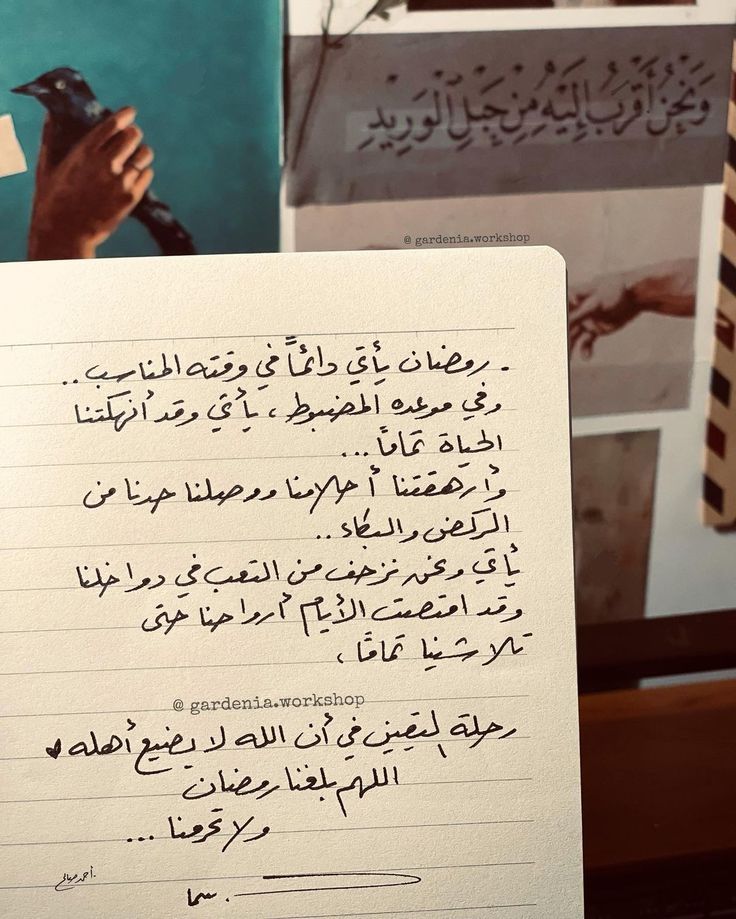 وَنَحْنُ أَقْرَبُ إِلَيْهِ مِنْ حَبْلِ الْوَرِيدِ
@ gardenia.workshop
. رمضان يأتي دائماً في وقته المناسب..
وفي موعده المضبوط، يأتي وقد أنهكتنا
الحياة تمامًا...
وأرهقتنا أحلامنا ووصلنا حدنا من
الركض والبكاء..
يأتي ونحن نزحف من التعب في دواخلنا
وقد امتصت الأيام أرواحنا حتى
تلاشينا تمامًا،
@ gardenia.workshop
رحلة اليقين في أن الله لا يضيع أهله ♥
اللهم بلغنا رمضان
ولا تحرمنا ...
. سما